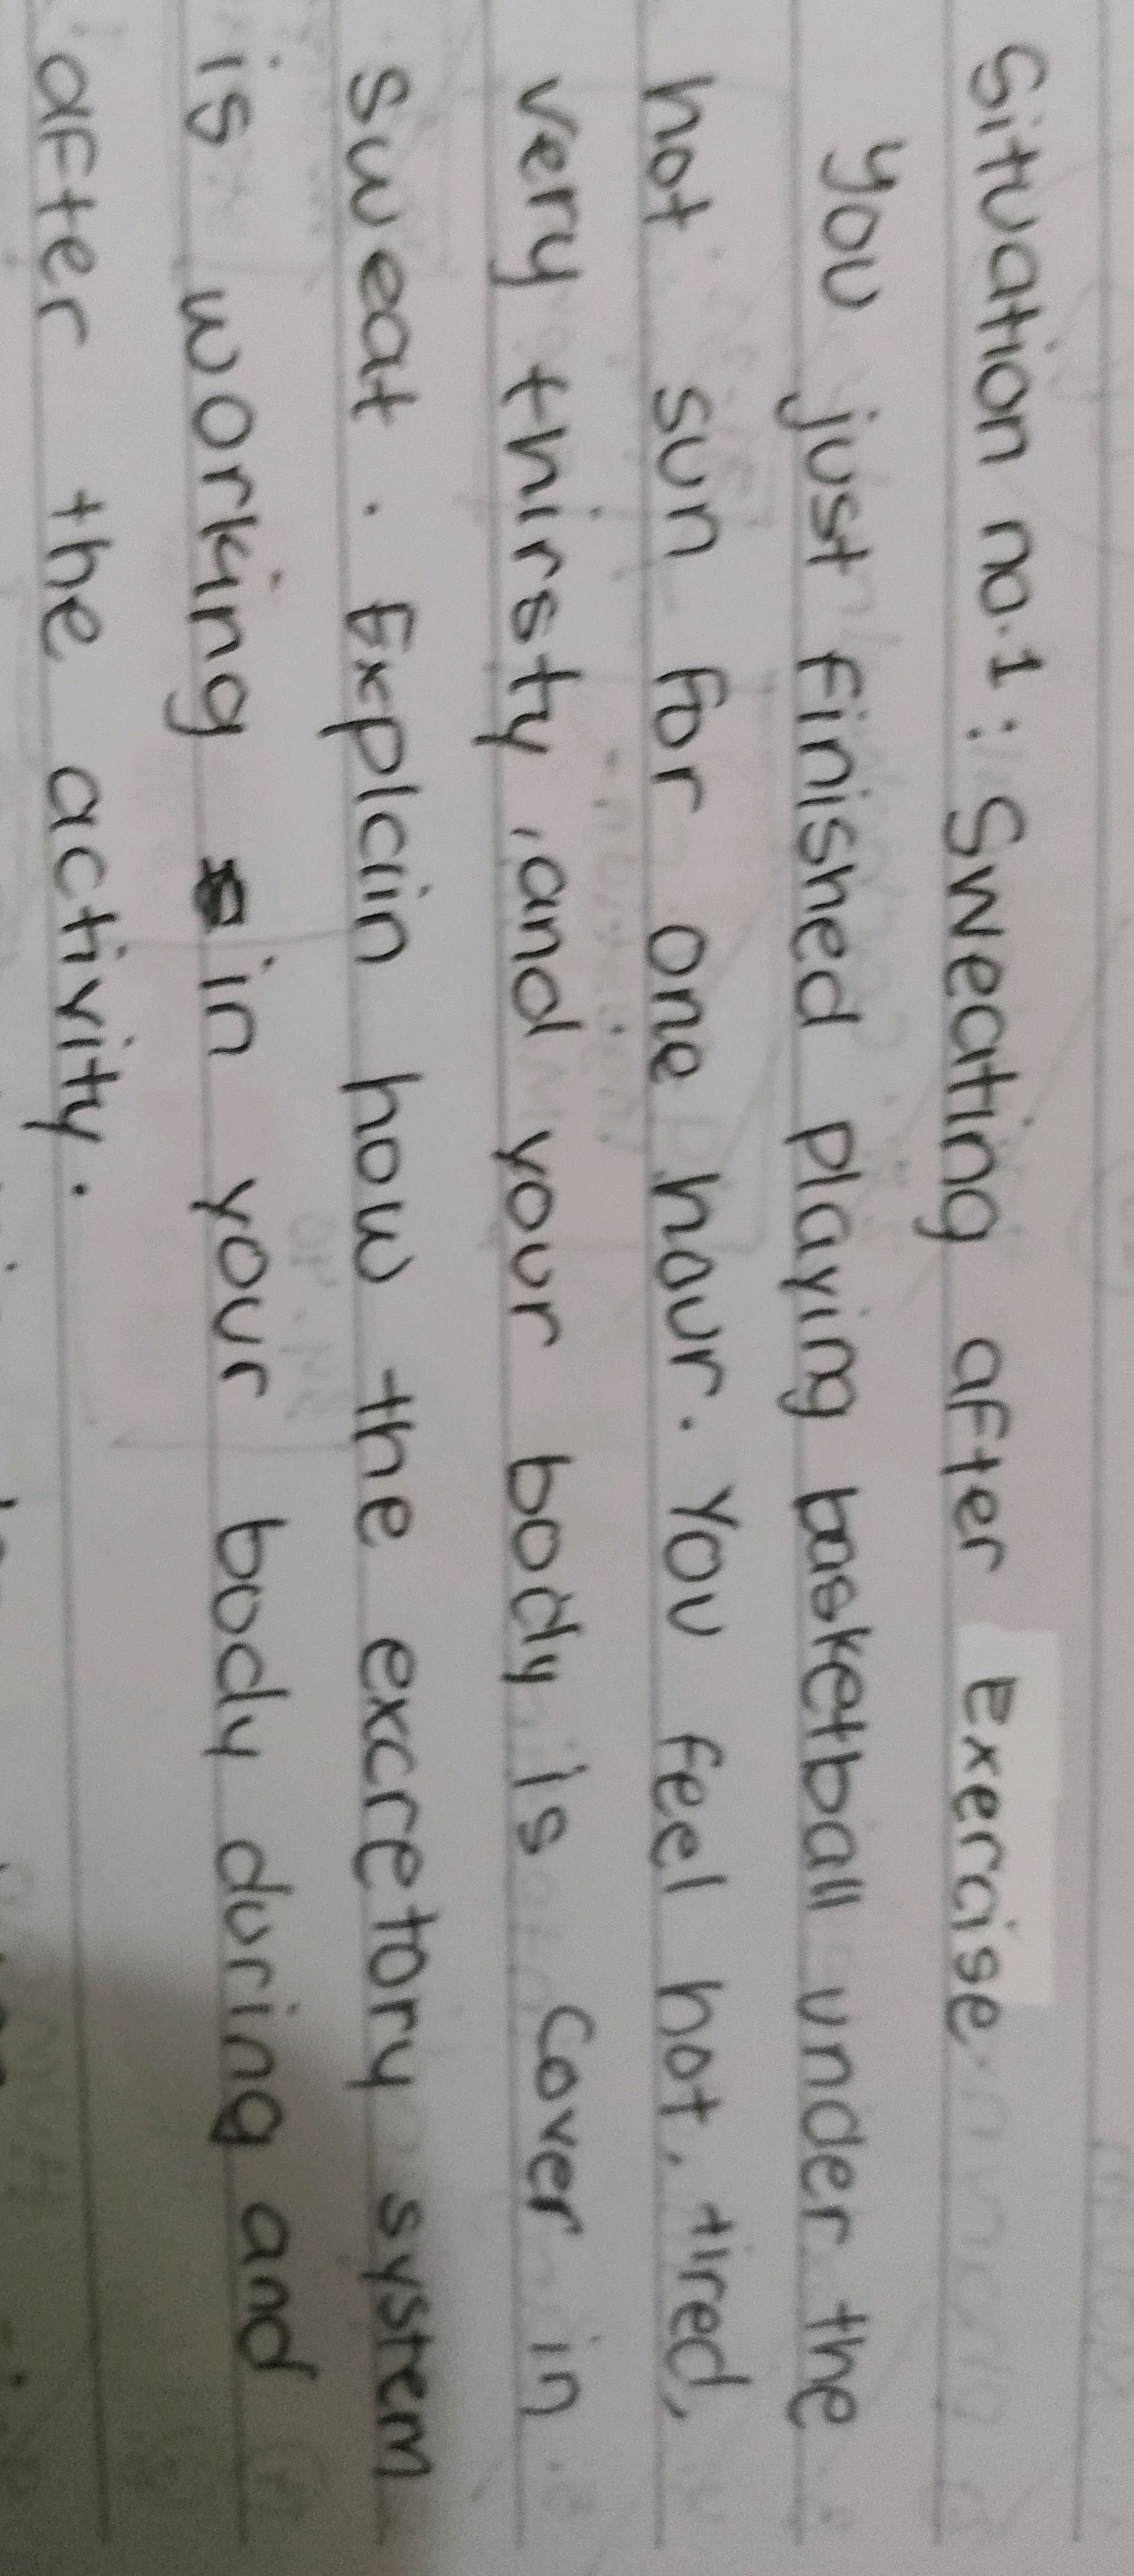 Situation no.1: Sweating after Exercise
you just finished playing basketball under the
hot sun for one hour. You feel hot, tired,
very thirsty, and your body is cover in
sweat. Explain how the excretory system
is working in your body during and
after the activity.